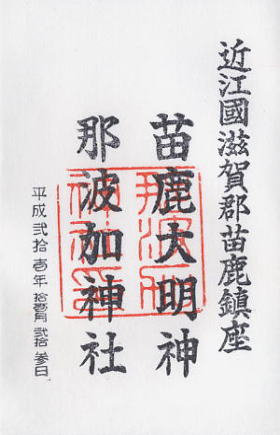 近江國滋賀郡苗鹿鎮座
苗鹿大明神
那波加神社
平成弐拾壱年 拾壱月 弐拾参日